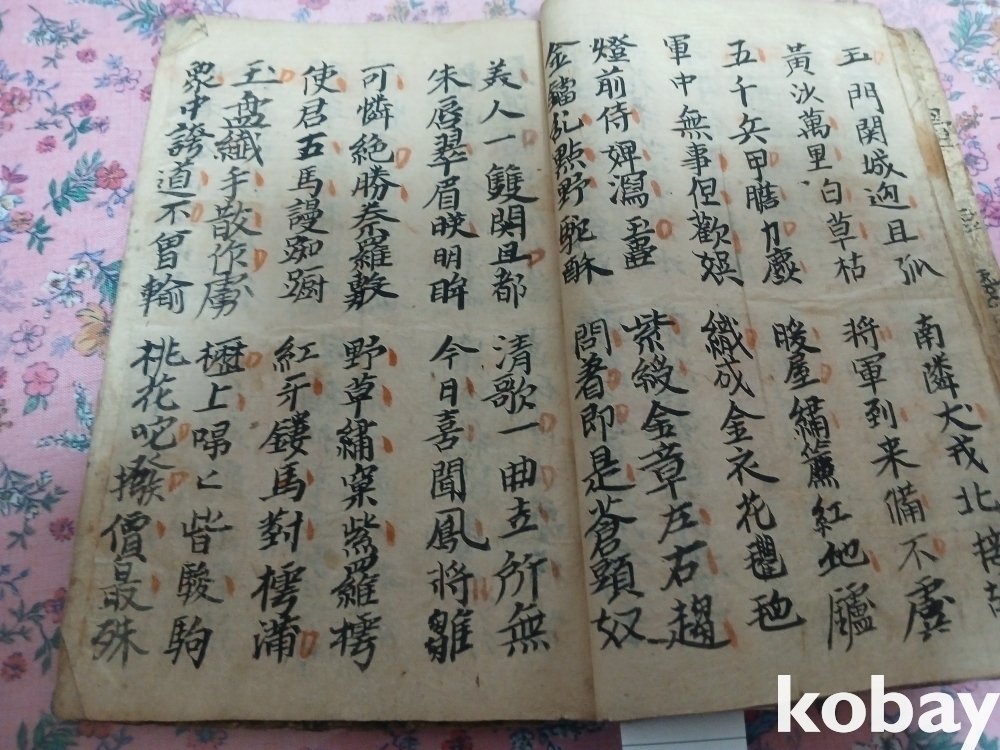 玉門関城迥且孤
南隣犬戎北接
黃沙萬里白草枯
將軍到來備不虞
五千兵甲膽力麤
暖屋繡簾紅地爐
軍中無事但歡娯
織成金衣花氍毹
燈前侍婢瀉玉壺
紫綬金章左右趨
金鐺乱點野酡酥
問着即是蒼頭奴
美人一雙閑且都
清歌一曲世所無
朱唇翠眉映明眸
今日喜聞鳳將雛
可憐絶勝秦羅敷
野草繡窠紫羅襦
使君五馬謾踟蹰
紅牙鏤馬對樗蒲
玉盘纖手散作盧
櫪上昂〻皆駿駒
眾中誇道不曾輸
桃花叱撥價最殊
kobay